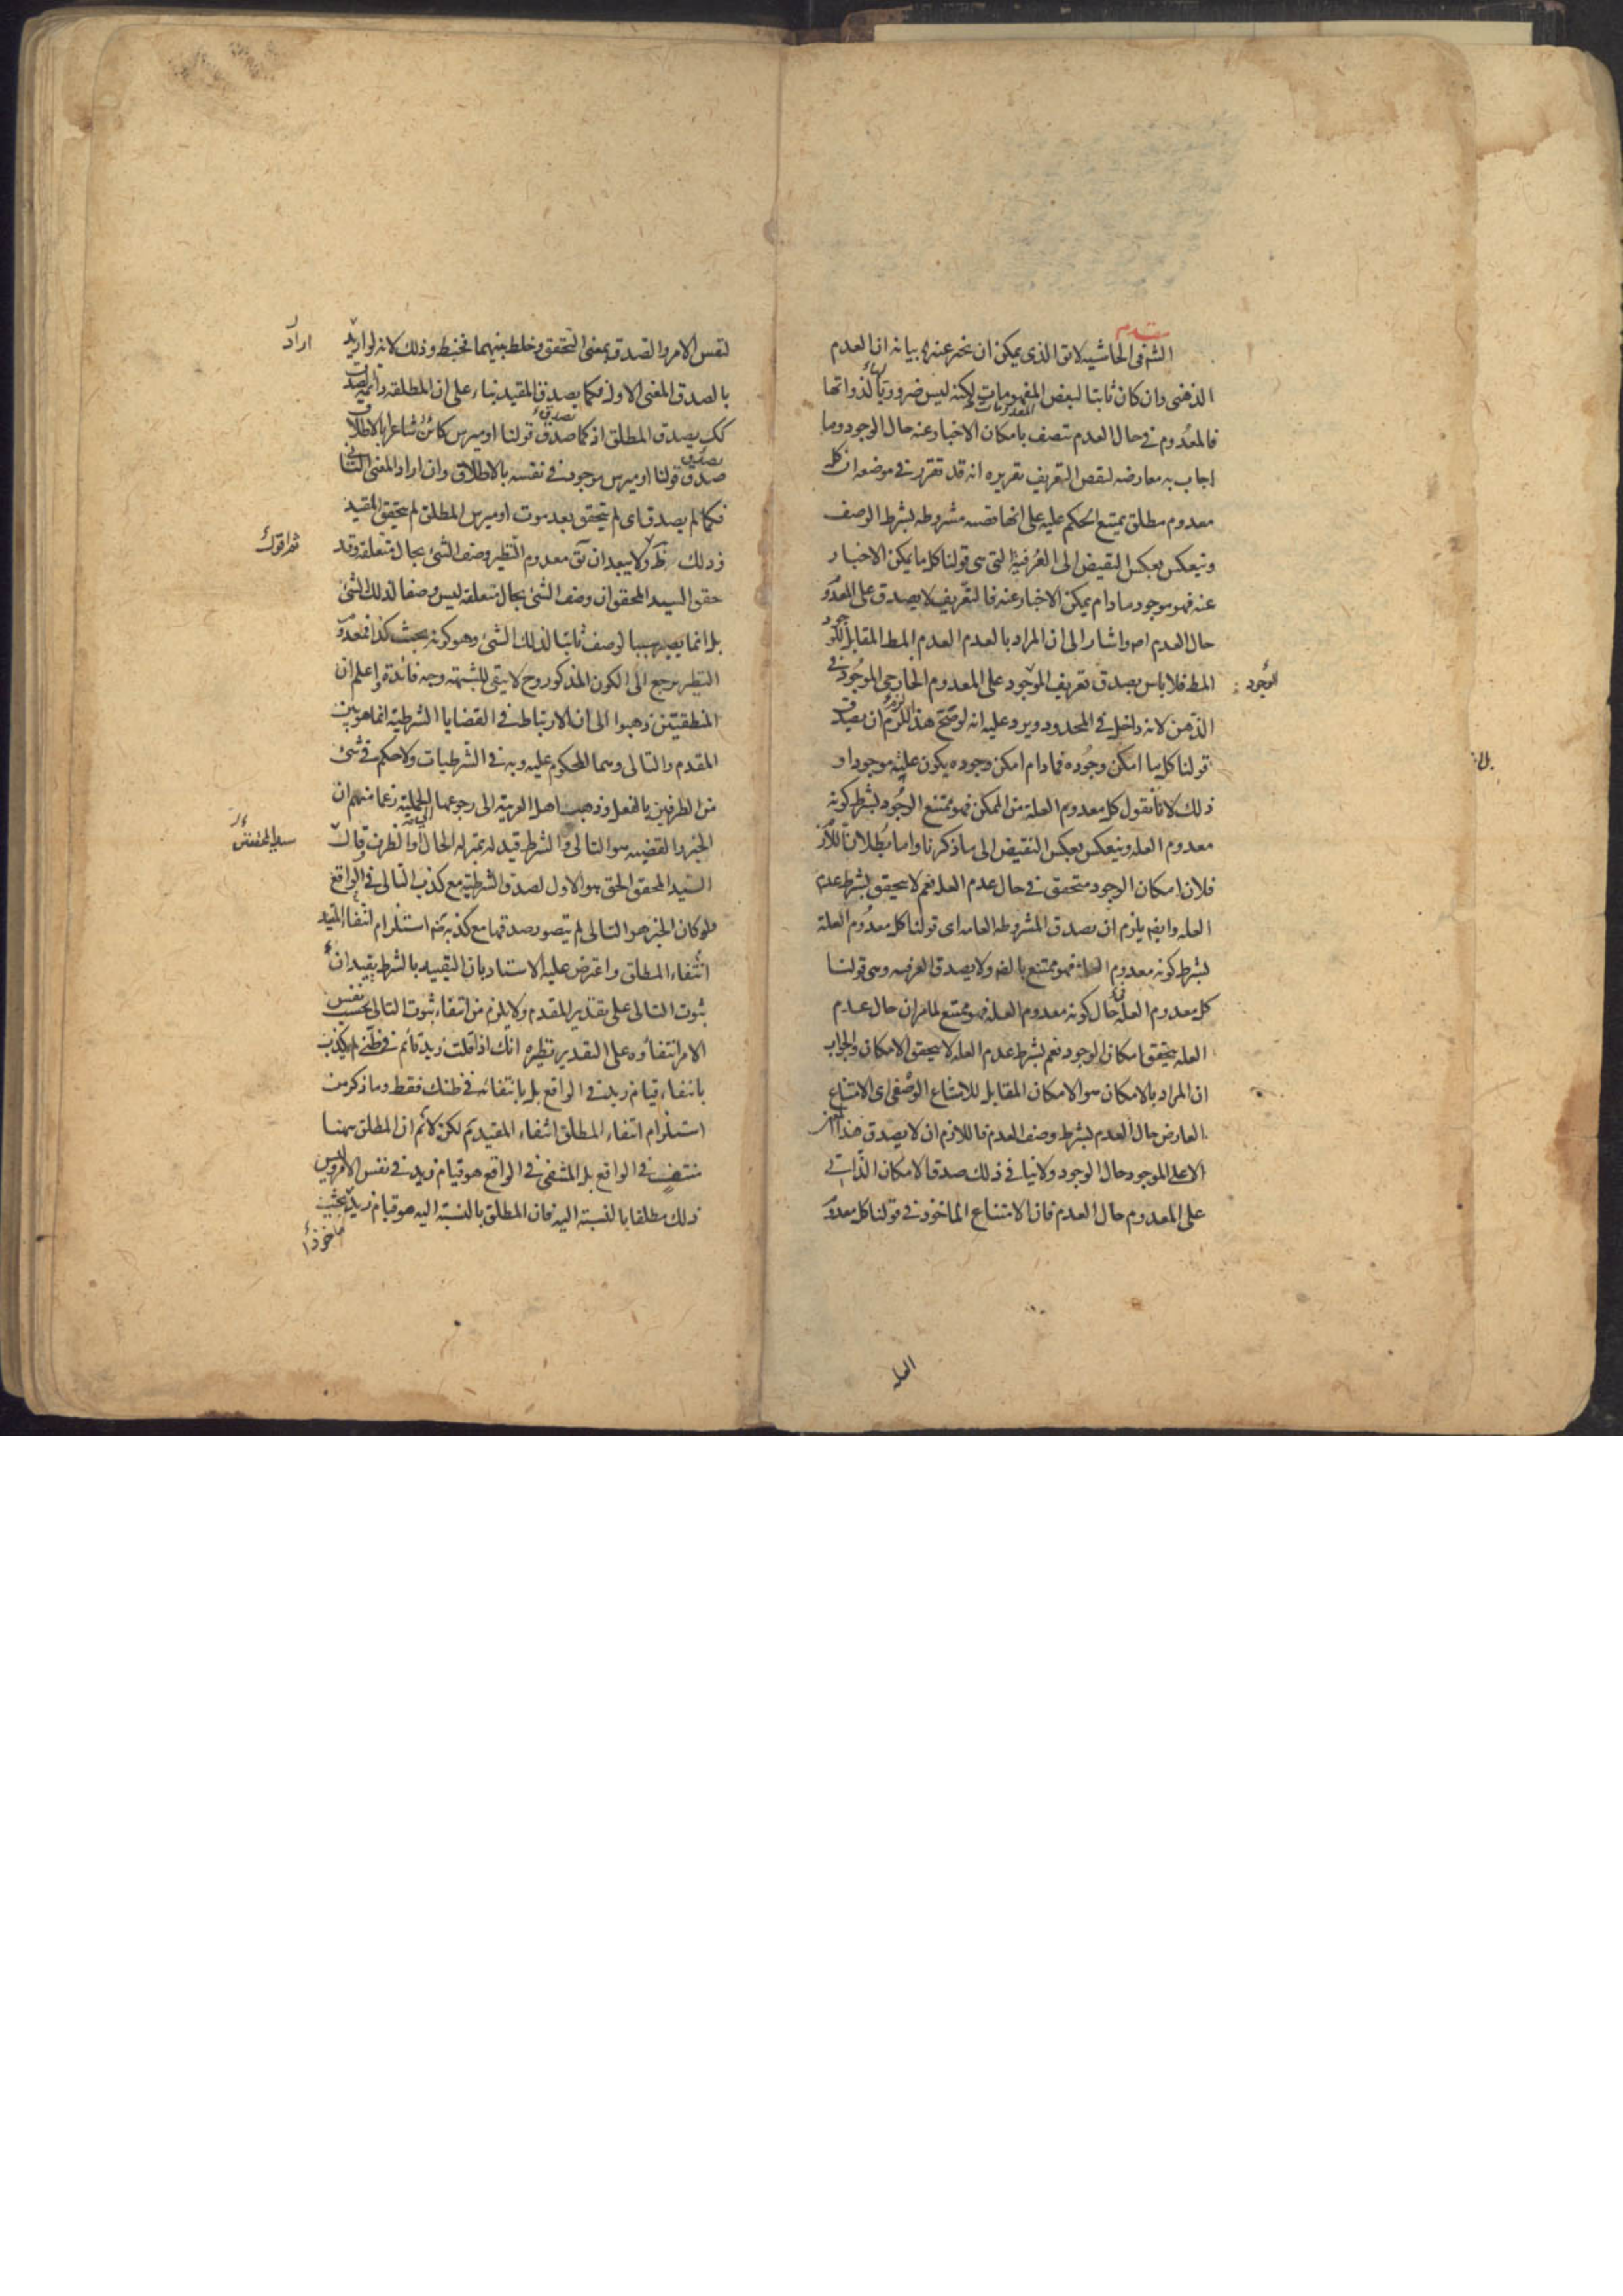 الشه فى الحاشيه لانق الذى يمكن ان يخبر عنه اه بيانه ان العدم
الذهنى وان كان ثابتا لبعض المفهومات لكنه ليس ضروريا لذواتها
فالمعدوم فى حال العدم متصف بامكان الاخبار عنه حال الوجود وما
اجاب به معارضه لنقص التعريف تقريره انه قد تقرر فى موضعه ان كل
معدوم مطلق يمتنع الحكم عليه على انها قضيه مشروطه بشرط الوصف
وينعكس بعكس النقيض الى العرفية التى هى قولنا كل ما يمكن الاخبار
عنه فهو موجود ما دام يمكن الاخبار عنه فالتعريف لا يصدق على المعدوم
حال العدم اصه واشار الى ان المراد بالعدم العدم المط المقابل للوجود
المط فلا باس بصدق تعريف الموجود على المعدوم الخارجى الموجود فى
الذهن لانه داخل فى المحدود ويرد عليه انه لو صح هذا لزم ان يصدق
قولنا كل ما امكن وجوده فما دام امكن وجوده يكون علته موجودا و
ذلك لانا نقول كل معدوم العلة من الممكن فهو ممتنع الوجود بشرط كونه
معدوم العله وينعكس بعكس النقيض الى ما ذكرنا واما بطلان اللازم
فلان امكان الوجود متحقق فى حال عدم العله نعم لا يتحقق بشرط عدم
العله وايضه يلزم ان يصدق المشروطه العامه اى قولنا كل معدوم العلة
بشرط كونه معدوم العلة فهو ممتنع بالضه ولا يصدق العرفيه وهى قولنا
كل معدوم العله حال كونه معدوم العله فهو ممتنع لما مر ان حال عدم
العله يتحقق امكان الوجود نعم بشرط عدم العله لا يتحقق الامكان والجواب
ان المراد بالامكان هو الامكان المقابل للامتناع الوصفى اى الامتناع
العارض حال العدم بشرط وصف العدم فاللازم ان لا يصدق هذا
الا على الموجود حال الوجود ولا ينافى ذلك صدق الامكان الذاتى
على المعدوم حال العدم فان الامتناع الماخوذ فى قولنا كل معدوم
الوجود
العله
لنفس الامر والصدق بمعنى التحقق وخلط بينهما فخبط وذلك لانه لو اريد
بالصدق المعنى الاول فكما يصدق المقيد بناء على ان المطلقه دائمة الصدق
كك يصدق المطلق اذ كما صدق قولنا اوميرس كائن شاعرا بالاطلاق
صدق قولنا اوميرس موجود فى نفسه بالاطلاق وان اراد المعنى الثانى
فكما لم يصدق اى لم يتحقق بعد موت اوميرس المطلق لم يتحقق المقيد
وذلك ظ ولا يبعد ان يق معدوم النظير وصف الشئ بحال متعلقه وقد
حقق السيد المحقق ان وصف الشئ بحال متعلقه ليس وصفا لذلك الشئ
بل انما يصير سببا لوصف ثابتا لذلك الشئ وهو كونه بحيث كذا فمعدوم
النظير يرجع الى الكون المذكور وح لا يبقى للشبهة وجه فائدة واعلم ان
المنطقيين ذهبوا الى ان الارتباط فى القضايا الشرطية انما هو بين
المقدم والتالى وهما المحكوم عليه وبه فى الشرطيات ولا حكم فى شئ
من الطرفين بالفعل وذهب اهل العربية الى رجوعها الى الحملية زعما منهم ان
الخبر والقضيه هو التالى والشرط قيد له بمنزله الحال او الظرف وقال
السيد المحقق الحق هو الاول لصدق الشرطية مع كذب التالى فى الواقع
ولو كان الخبر هو التالى لم يتصور صدقها مع كذبه ضه استلزام انتفاء المقيد
انتفاء المطلق واعترض عليه الاستاد بان التقييد بالشرط يفيد ان
ثبوت التالى على تقدير المقدم ولا يلزم من انتفاء ثبوت التالى بحسب نفس
الامر انتفاؤه على التقدير نظيره انك اذا قلت زيد قائم فى ظنى لم يكذب
بانتفاء قيام زيد فى الواقع بل بانتفائه فى ظنك فقط وما ذكر من
استلزام انتفاء المطلق انتفاء المقيد تم لكن لانم ان المطلق هنا
منتف فى الواقع بل المنتفى فى الواقع هو قيام زيد فى نفس الامر وليس
ذلك مطلقا بالنسبة اليه فان المطلق بالنسبة اليه هو قيام زيد بحيث
اراد